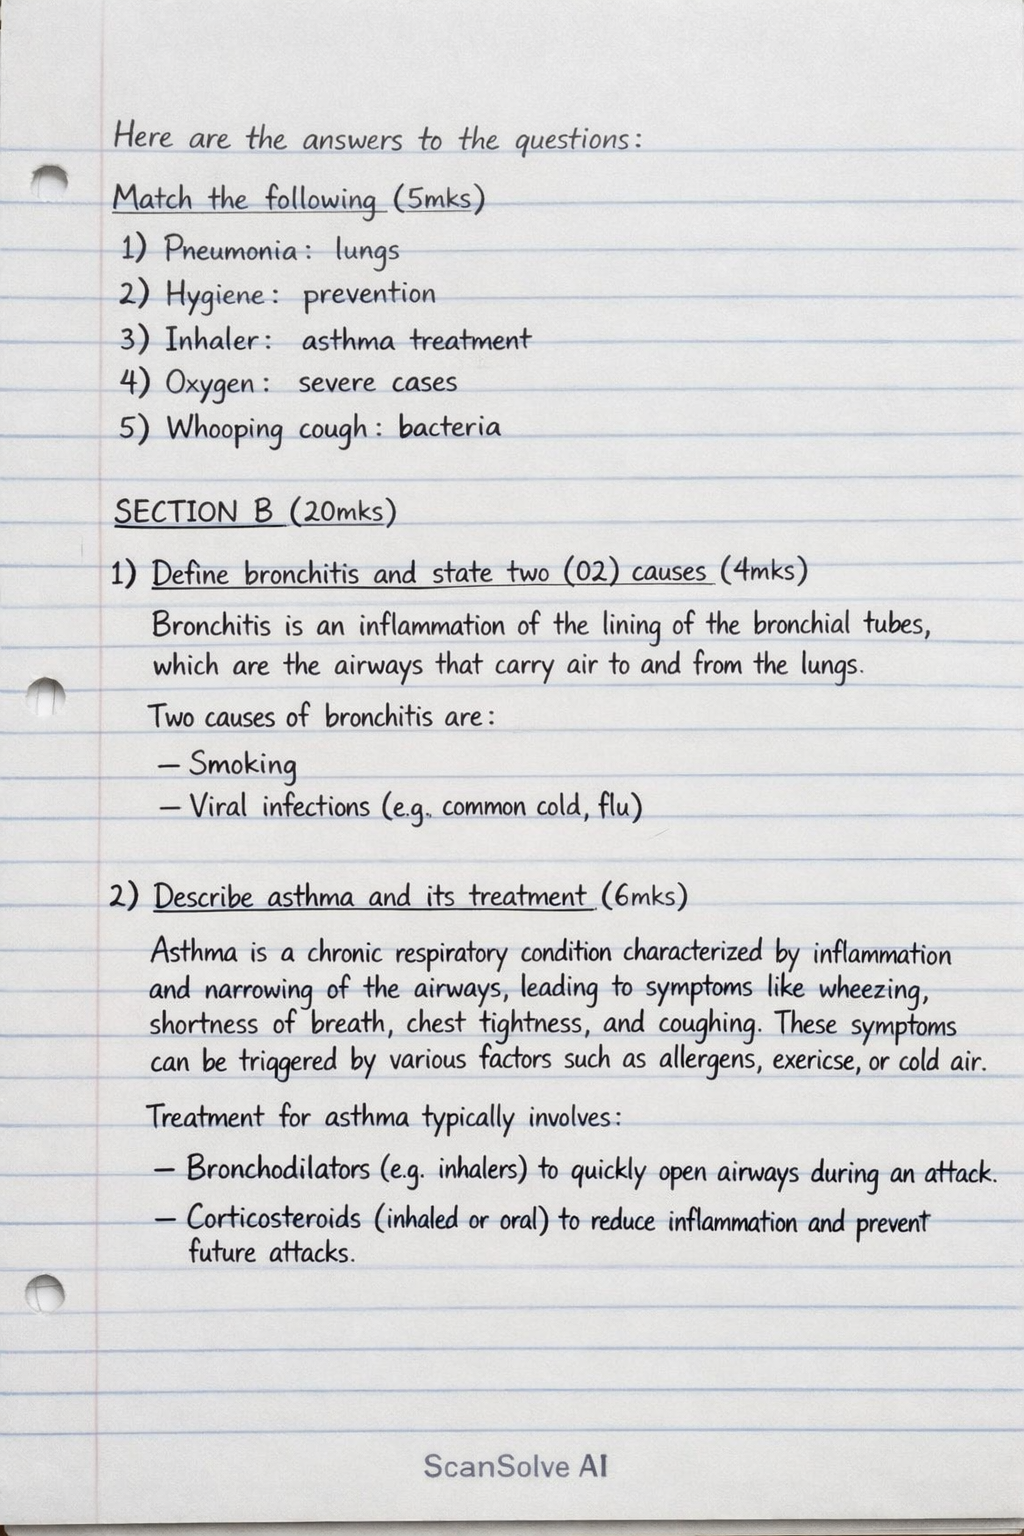 Here are the answers to the questions:
Match the following (5mks)
1) Pneumonia: lungs
2) Hygiene: prevention
3) Inhaler: asthma treatment
4) Oxygen: severe cases
5) Whooping cough: bacteria
SECTION B (20mks)
1) Define bronchitis and state two (02) causes (4mks)
Bronchitis is an inflammation of the lining of the bronchial tubes,
which are the airways that carry air to and from the lungs.
Two causes of bronchitis are:
– Smoking
– Viral infections (e.g. common cold, flu)
2) Describe asthma and its treatment (6mks)
Asthma is a chronic respiratory condition characterized by inflammation
and narrowing of the airways, leading to symptoms like wheezing,
shortness of breath, chest tightness, and coughing. These symptoms
can be triggered by various factors such as allergens, exericse, or cold air.
Treatment for asthma typically involves:
– Bronchodilators (e.g. inhalers) to quickly open airways during an attack.
– Corticosteroids (inhaled or oral) to reduce inflammation and prevent
future attacks.
ScanSolve AI